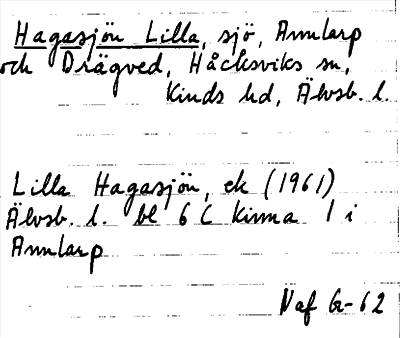 Hagasjön Lilla, sjö, Annlarp
och Drägved, Håcksviks sn,
Kinds hd, Älvsb. l.
Lilla Hagasjön, ek (1961)
Älvsb. l. bl 6 C Kinna 1 i
Annlarp
Naf G-62